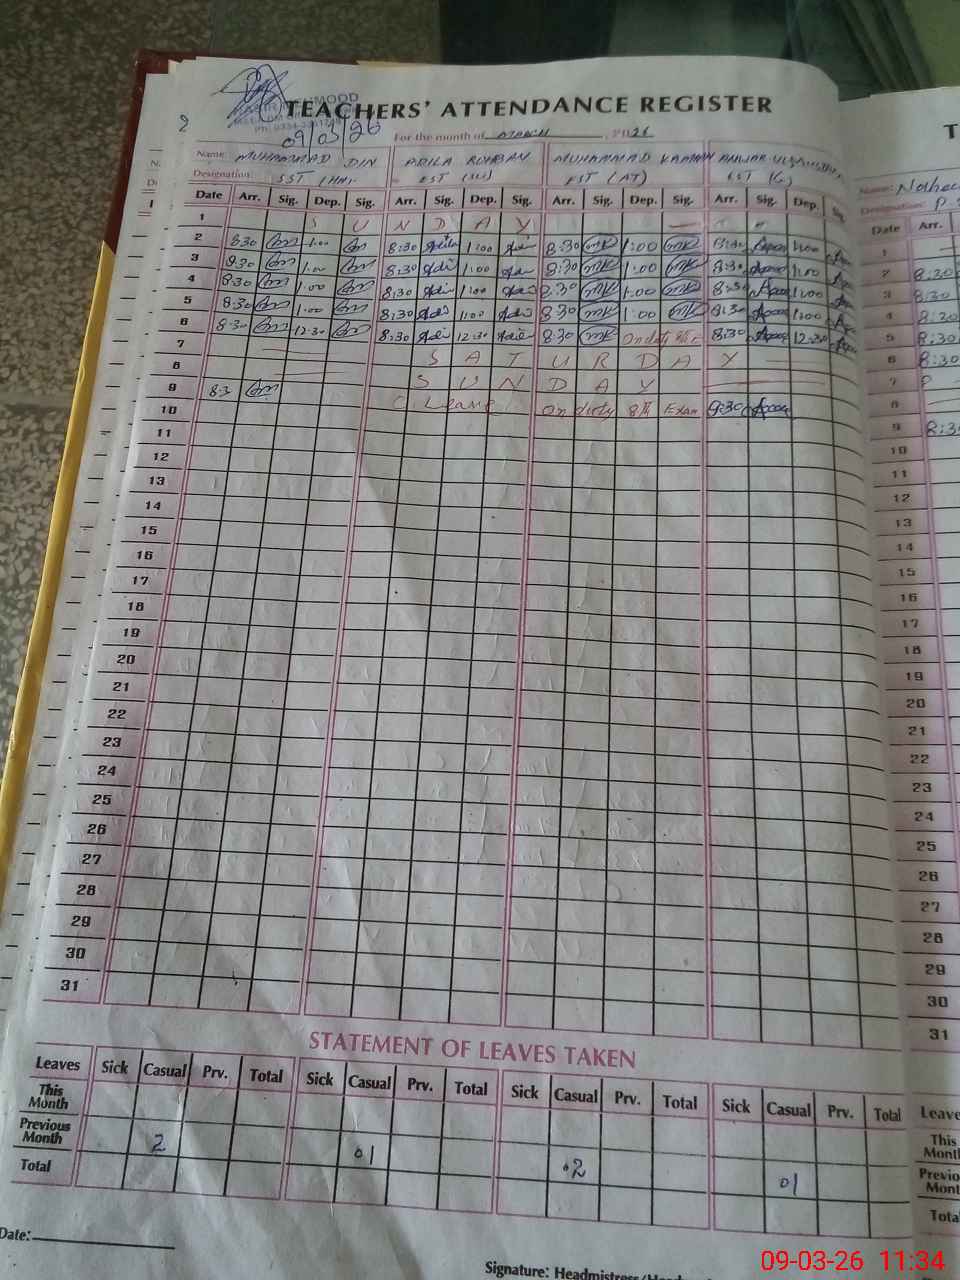 MOOD
TEACHERS' ATTENDANCE REGISTER
2
09/03/26
For the month of MARCH, 2026
Name: MUHAMMAD DIN ADILA MUHAMMAD
Designation: SST (HM) EST (AT) EST
Date Arr. Sig. Dep. Sig. Arr. Sig. Dep. Sig. Arr. Sig. Dep. Sig. Arr. Sig. Dep. Sig.
1 S U N D A Y
2 8:30 1:00 8:30 1:00 8:30 1:00 8:30 1:00
3 8:30 1:00 8:30 1:00 8:30 1:00 8:30 1:00
4 8:30 1:00 8:30 1:00 8:30 1:00 8:30 1:00
5 8:30 1:00 8:30 1:00 8:30 1:00 8:30 1:00
6 8:30 12:30 8:30 12:30 8:30 On duty 8:30 12:30
7 S A T U R D A Y
8 S U N D A Y
9 8:3 C. Leave On duty 8th Exam 8:30
10
11
12
13
14
15
16
17
18
19
20
21
22
23
24
25
26
27
28
29
30
31
STATEMENT OF LEAVES TAKEN
Leaves Sick Casual Prv. Total Sick Casual Prv. Total Sick Casual Prv. Total Sick Casual Prv. Total
This Month
Previous Month 2 01 02 01
Total
Date:
Signature: Headmistress/
T
Name:
Designation: P.
Date Arr.
1
2 8:30
3 8:30
4 8:30
5 8:30
6 8:30
7 P
8
9 8:3
10
11
12
13
14
15
16
17
18
19
20
21
22
23
24
25
26
27
28
29
30
31
Leave
This
Month
Previo
Mont
Tota
09-03-26 11:34